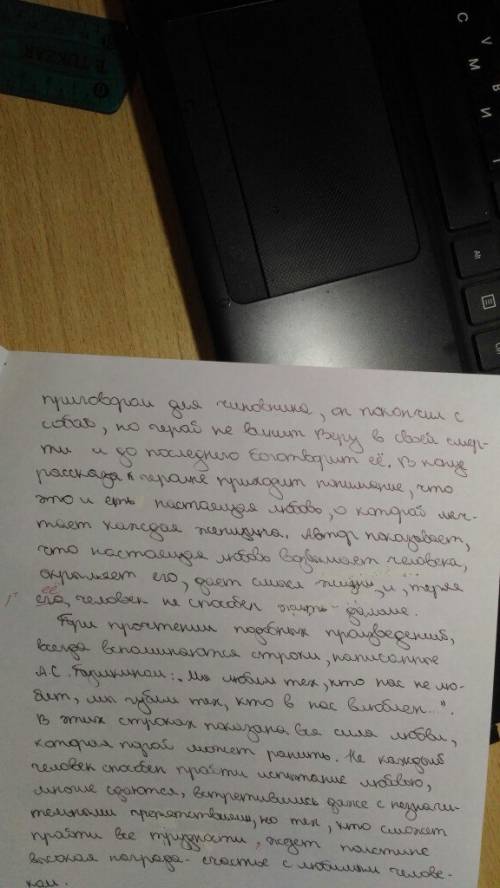 TUKZAR
С М
V
В И
Alt
приговором для чиновника, он покончил с
собой, но герой не винит Веру в своей смер-
ти и до последнего боготворит её. В конце
рассказа к героине приходит понимание, что
это и есть настоящая любовь, о которой меч-
тает каждая женщина. Автор показывает,
что настоящая любовь возвышает человека,
окрыляет его, даёт смысл жизни, и, теряя
её
его, человек не способен жить дальше.
При прочтении подобных произведений,
всегда вспоминаются строки, написанные
А.С. Пушкиным: "Мы любим тех, кто нас не лю-
бит, мы губим тех, кто в нас влюблен...".
В этих строках показана вся сила любви,
которая порой может ранить. Не каждый
человек способен пройти испытание любовью,
многие сдаются, встретившись даже с незначи-
тельными препятствиями, но тех, кто сможет
пройти все трудности, ждет поистине
высокая награда - счастье с любимым челове-
ком.